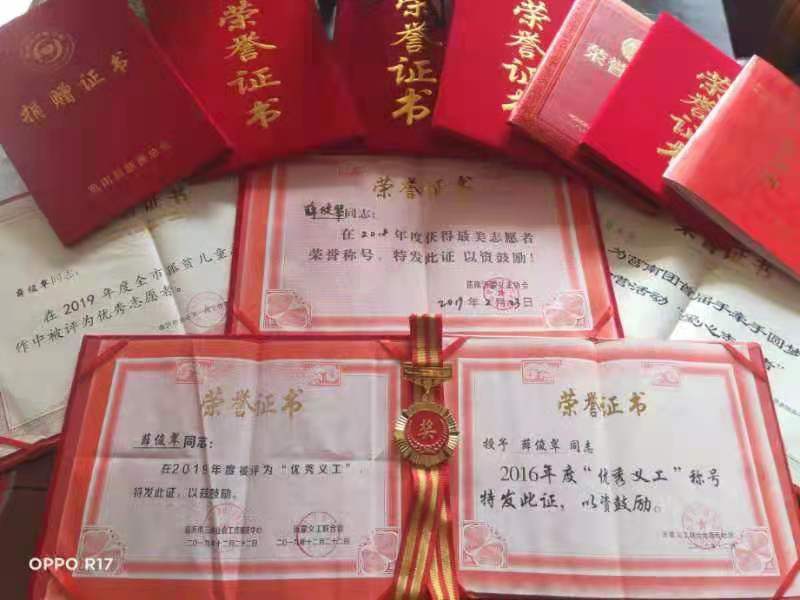 捐赠证书
莒南县慈善总会
荣誉证书
荣誉证书
荣誉证书
荣誉
荣誉证书
荣誉证书
薛俊翠同志：
在2018年度获得最美志愿者
荣誉称号，特发此证 以资鼓励！
2019年2月23日
证书
薛俊翠同志：
在2019年度全市孤贫儿童
作中被评为优秀志愿者。
荣誉证书
为莒南团首届手牵手圆梦
荣誉证书
薛俊翠同志：
在2019年度被评为“优秀义工”，
特发此证，以兹鼓励。
二〇一九年十二月二十二日
二〇一九年十二月二十二日
奖
荣誉证书
授予 薛俊翠 同志
2016年度“优秀义工”称号
特发此证，以资鼓励。
OPPO R17